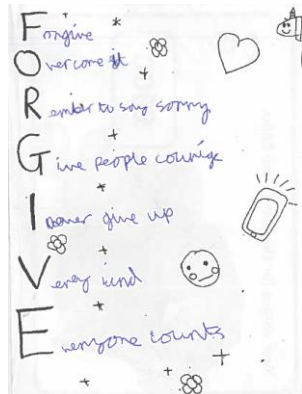 Forgive
Overcome it
Rember to say sorry
Give people
I never give up
Very kind
Everyone counts